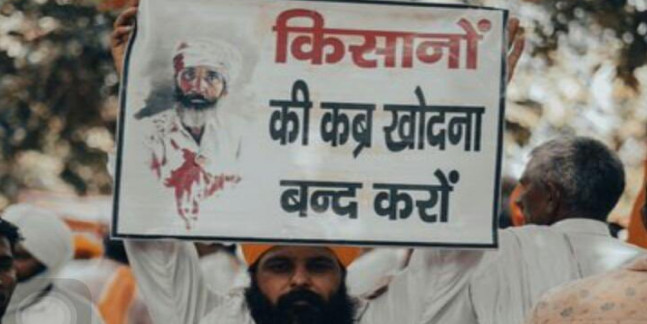 किसानों
की कब्र खोदना
बन्द करों